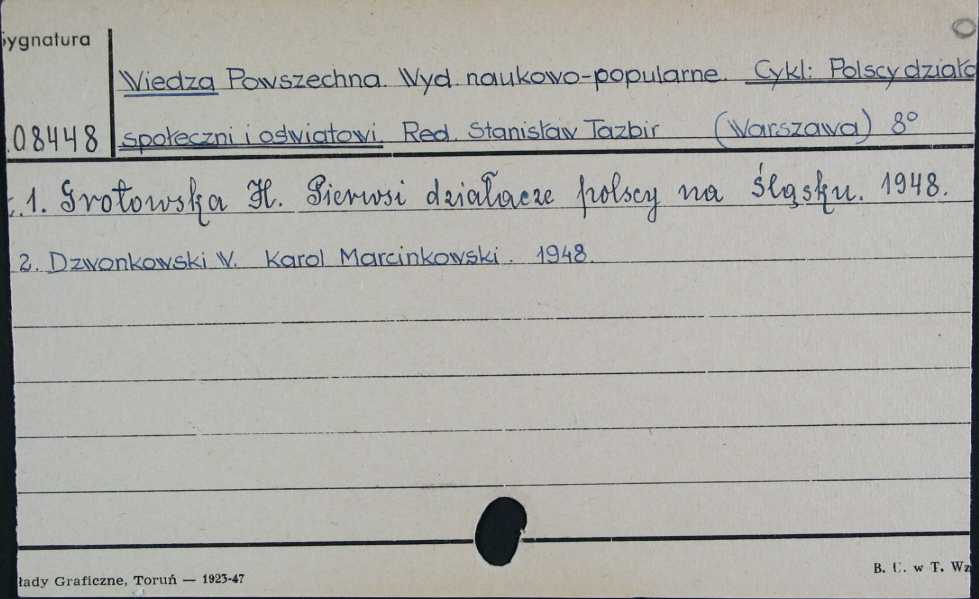 Sygnatura
Wiedza Powszechna. Wyd. naukowo-popularne. Cykl: Polscy działa
08448 społeczni i oświatowi. Red. Stanisław Tazbir (Warszawa) 8°
1. Grotowska H. Pierwsi działacze polscy na Śląsku. 1948.
2. Dzwonkowski W. Karol Marcinkowski. 1948.
łady Graficzne, Toruń — 1923-47
B. U. w T. Wz